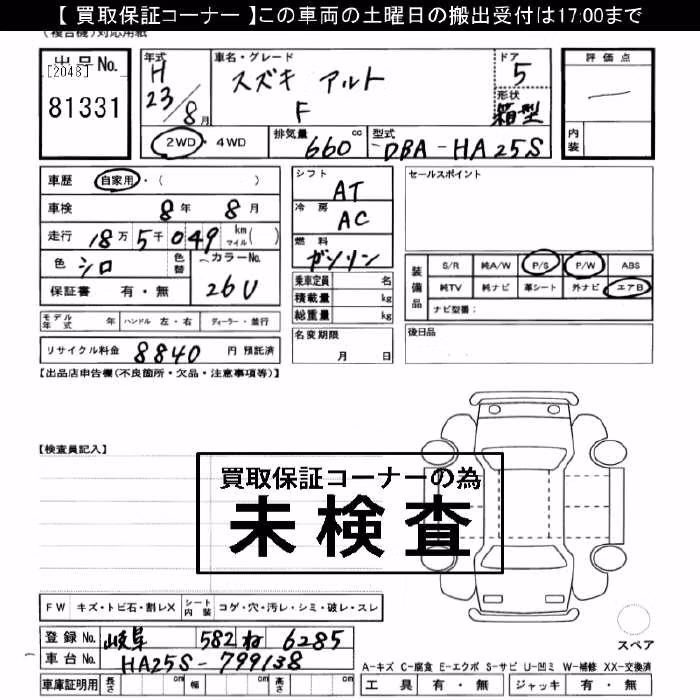 【 買取保証コーナー 】この車両の土曜日の搬出受付は17:00まで
(複合機)対応用紙
出品No.
[2048]
81331
年式
H
23/8月
車名・グレード
スズキ アルト
F
ドア
5
形状
箱型
評価点
内装
2WD・4WD
排気量
660
cc
型式
DBA-HA25S
車歴 自家用・( )
車検 8年 8月
走行 18万5千049 km マイル( )
色 シロ
色替
カラーNo.
26U
保証書 有・無
モデル年式 年 ハンドル 左・右 ディーラー・並行
リサイクル料金 8840 円 預託済
シフト
AT
冷房
AC
燃料
ガソリン
乗車定員 名
積載量 kg
総重量 kg
名変期限
月 日
セールスポイント
装備品
S/R 純A/W P/S P/W ABS
純TV 純ナビ 革シート 外ナビ エアB
ナビ型番:
後日品
【出品店申告欄(不良箇所・欠品・注意事項等)】
【検査員記入】
買取保証コーナーの為
未検査
FW キズ・トビ石・割レX シート内装 コゲ・穴・汚レ・シミ・破レ・スレ
登録No. 岐阜 582 ね 6285
車台No. HA25S-799138
車庫証明用 長さ cm 幅 cm 高さ cm
スペア
A-キズ C-腐食 E-エクボ S-サビ U-凹ミ W-補修 XX-交換済
工具 有・無 ジャッキ 有・無